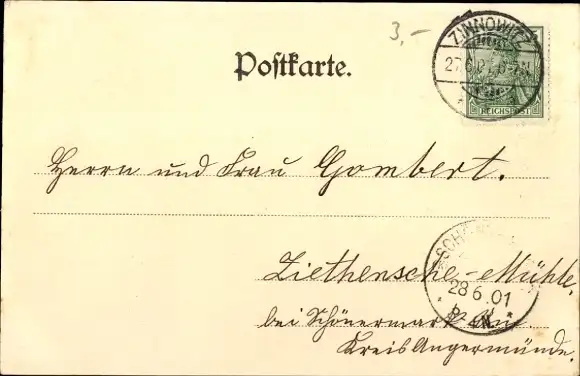 3,-
ZINNOWITZ
27.6.01. 6-7N.
REICHSPOST
Postkarte.
Herrn und Frau Gombert.
Ziethensche-Mühle,
28 6.01
bei Schönermark
Kreis Angermünde.